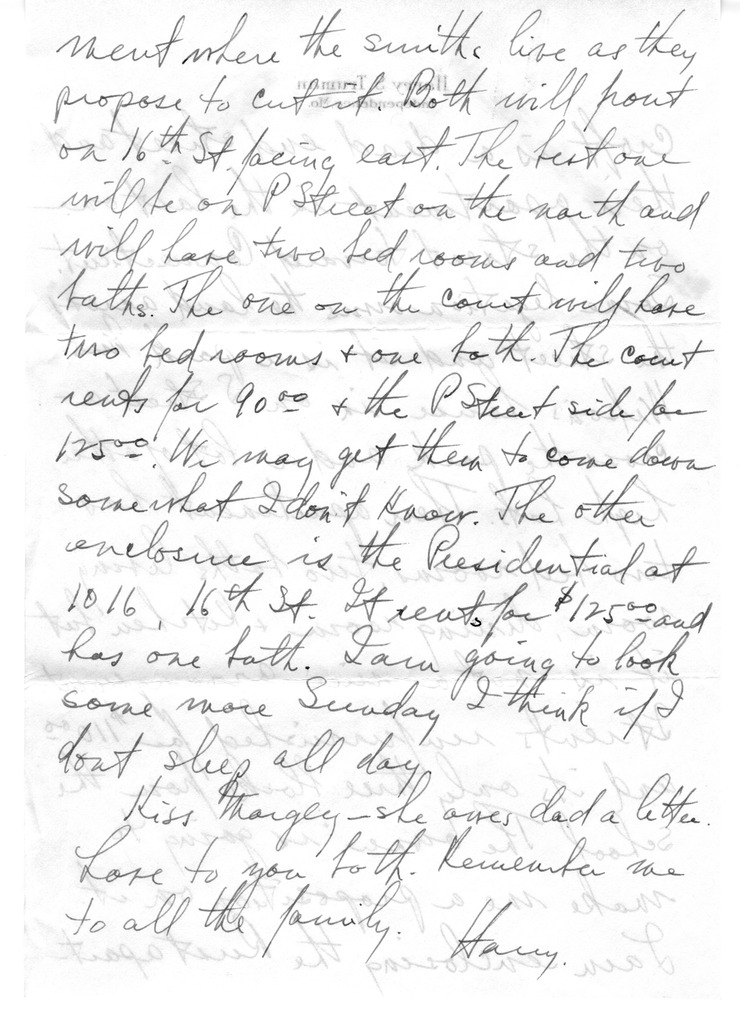 ment where the Smiths live as they
propose to cut it. Both will front
on 16th St facing east. The best one
will be on P Street on the north and
will have two bed rooms and two
baths. The one on the court will have
two bed rooms & one bath. The court
rents for 90 00 & the P Street side for
125 00. We may get them to come down
somewhat I don't know. The other
enclosure is the Presidential at
1016, 16th St. It rents for $125 00 and
has one bath. I am going to look
some more Sunday I think if I
dont sleep all day
Kiss Margey - she owes dad a letter.
Love to you both. Remember me
to all the family.
Harry.
Harry S. Truman
Independence, Mo.